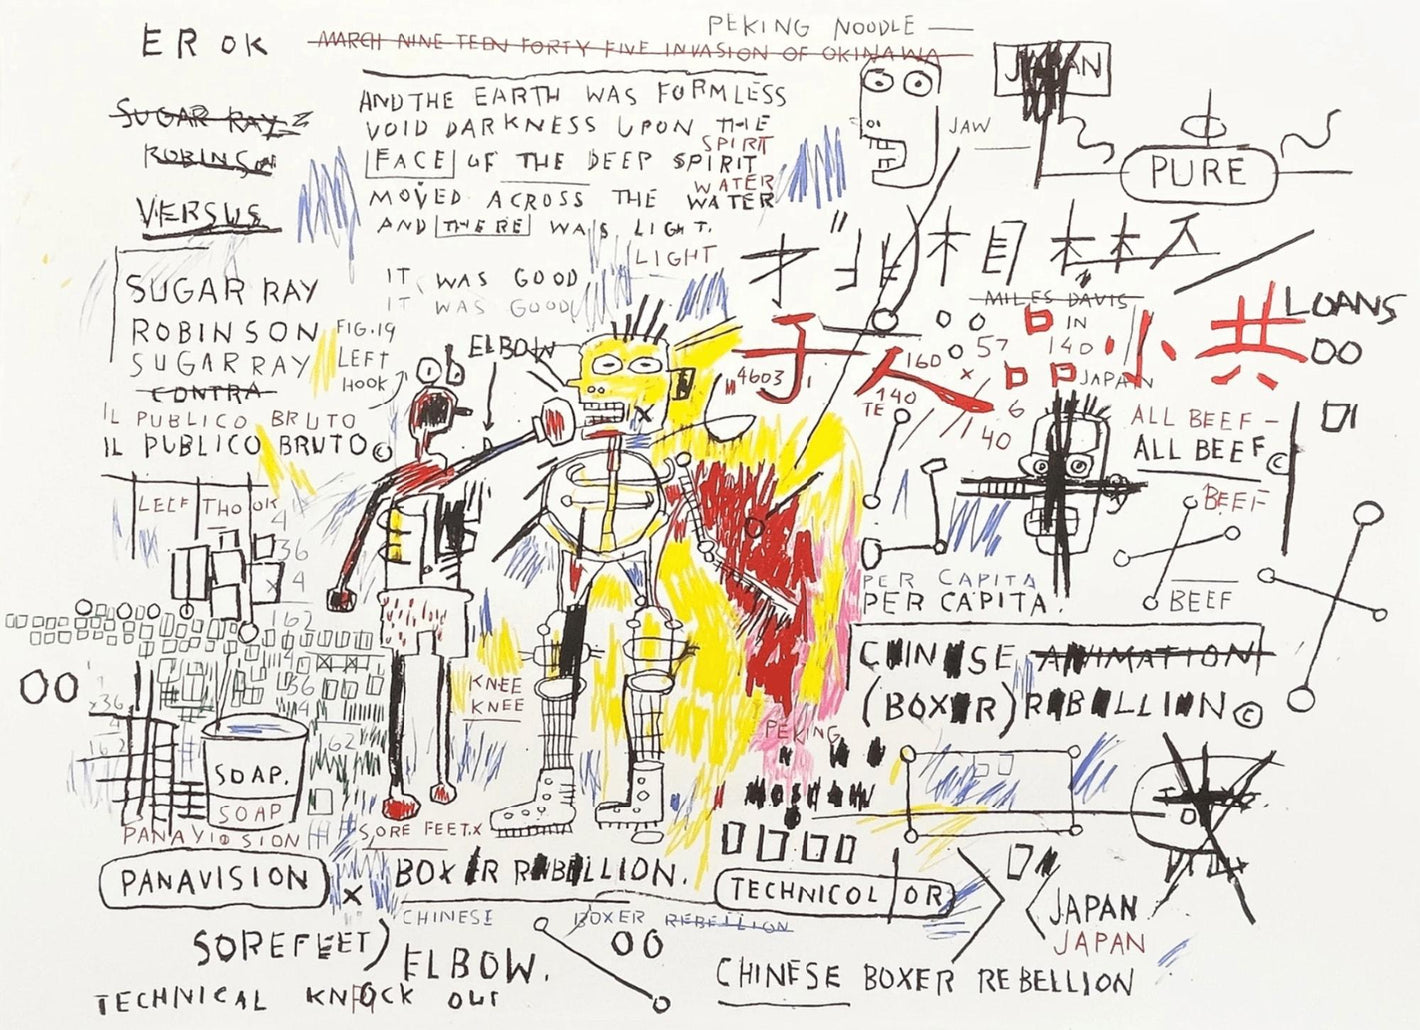 PEKING NOODLE —
EROK
MARCH NINETEEN FORTY FIVE INVASION OF OKINAWA
JAPAN
SUGAR RAY
ROBINSON
VERSUS
AND THE EARTH WAS FORMLESS
VOID DARKNESS UPON THE
SPIRIT
FACE OF THE DEEP SPIRIT
WATER
MOVED ACROSS THE WATER
AND THERE WAS LIGHT.
LIGHT
IT WAS GOOD
IT WAS GOOD
JAW
PURE
SUGAR RAY
ROBINSON
SUGAR RAY
CONTRA
IL PUBLICO BRUTO
IL PUBLICO BRUTO©
FIG.19
LEFT
HOOK
ELBOW
MILES DAVIS
IN
57 140
JAPAN
160
4603
140
TE
6
40
LOANS
00
小 共
子 人
ALL BEEF —
ALL BEEF©
BEEF
BEEF
PER CAPITA
PER CAPITA.
CHINESE ANIMATION
(BOXER) REBELLION ©
4
36
4
162
36
4
162
00
KNEE
KNEE
PEKING
SOAP.
SOAP
PANAVISION
SORE FEET.X
PANAVISION
X
BOXER REBELLION.
CHINESE BOXER REBELLION
TECHNICOLOR
JAPAN
JAPAN
SORE FEET)
ELBOW.
00
CHINESE BOXER REBELLION
TECHNICAL KNOCK OUT